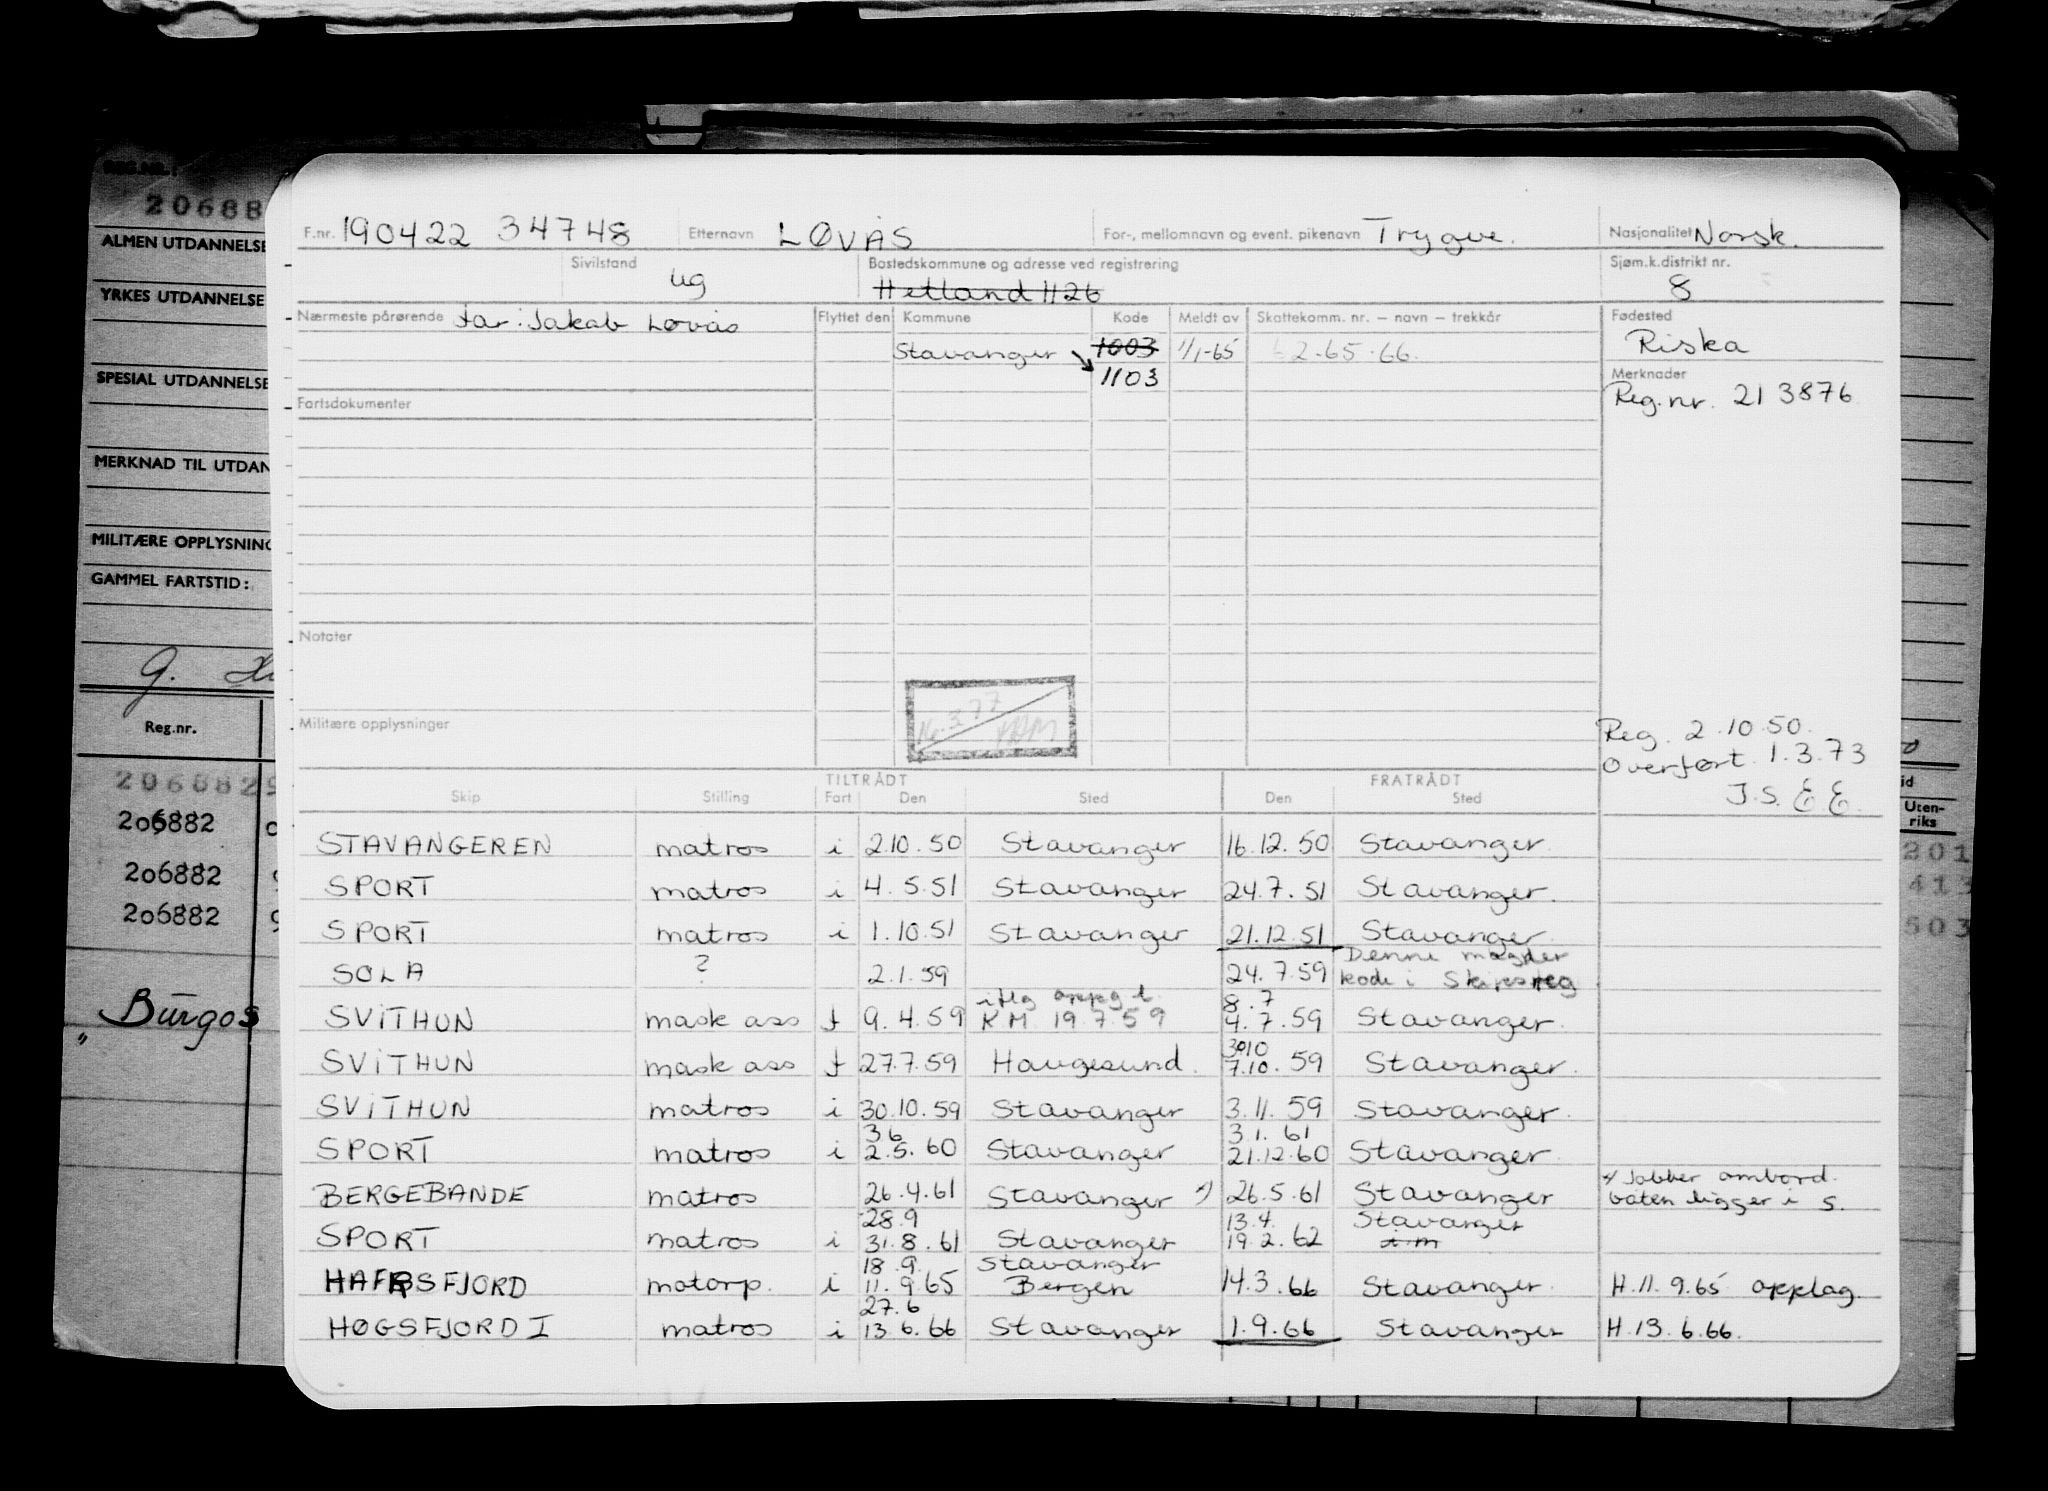 REG.NR.:
20688
ALMEN UTDANNELSE
YRKES UTDANNELSE
SPESIAL UTDANNELSE
MERKNAD TIL UTDAN
MILITÆRE OPPLYSNING
GAMMEL FARTSTID:
G.
Reg.nr.
2068829
206882
206882
206882
Burgos
"
F.nr. 190422 34748 Etternavn LØVÅS For-, mellomnavn og event. pikenavn Trygve. Nasjonalitet Norsk.
Sivilstand ug Bostedskommune og adresse ved registrering Hetland 1126 Sjøm.k.distrikt nr. 8
Nærmeste pårørende far: Jakob Løvås Flyttet den Kommune Kode Meldt av Skattekomm. nr. – navn – trekkår Fødested
Stavanger 1003 1/1-65 2.65.66. Riska
1103 Merknader
Fartsdokumenter Reg.nr. 213876
Notater
16.3.77
Militære opplysninger
Reg. 2.10.50.
Overført 1.3.73
J.S. E.E.
TILTRÅDT FRATRÅDT
Skip Stilling Fart Den Sted Den Sted
STAVANGEREN matros i 2.10.50 Stavanger 16.12.50 Stavanger.
SPORT matros i 4.5.51 Stavanger 24.7.51 Stavanger.
SPORT matros i 1.10.51 Stavanger 21.12.51 Stavanger.
Denne mangler
SOLA ? 2.1.59 24.7.59 kode i Skipsreg
iflg oppg t. 8.7
SVITHUN mask ass f 9.4.59 KM 19.7.59 4.7.59 Stavanger.
30.10
SVITHUN mask ass f 27.7.59 Haugesund. 7.10.59 Stavanger.
SVITHUN matros i 30.10.59 Stavanger 3.11.59 Stavanger.
3.6 3.1.61
SPORT matros i 2.5.60 Stavanger 21.12.60 Stavanger.
x) Jobber ombord.
BERGEBANDE matros 26.4.61 Stavanger x) 26.5.61 Stavanger båten ligger i S.
28.9 13.4. Stavanger
SPORT matros i 31.8.61 Stavanger 19.2.62
18.9. Stavanger
HAFRSFJORD motorp. i 11.9.65 Bergen 14.3.66 Stavanger. H.11.9.65 opplag.
27.6
HØGSFJORD I matros i 13.6.66 Stavanger 1.9.66 Stavanger H.13.6.66.
id
Uten-
riks
201
413
503